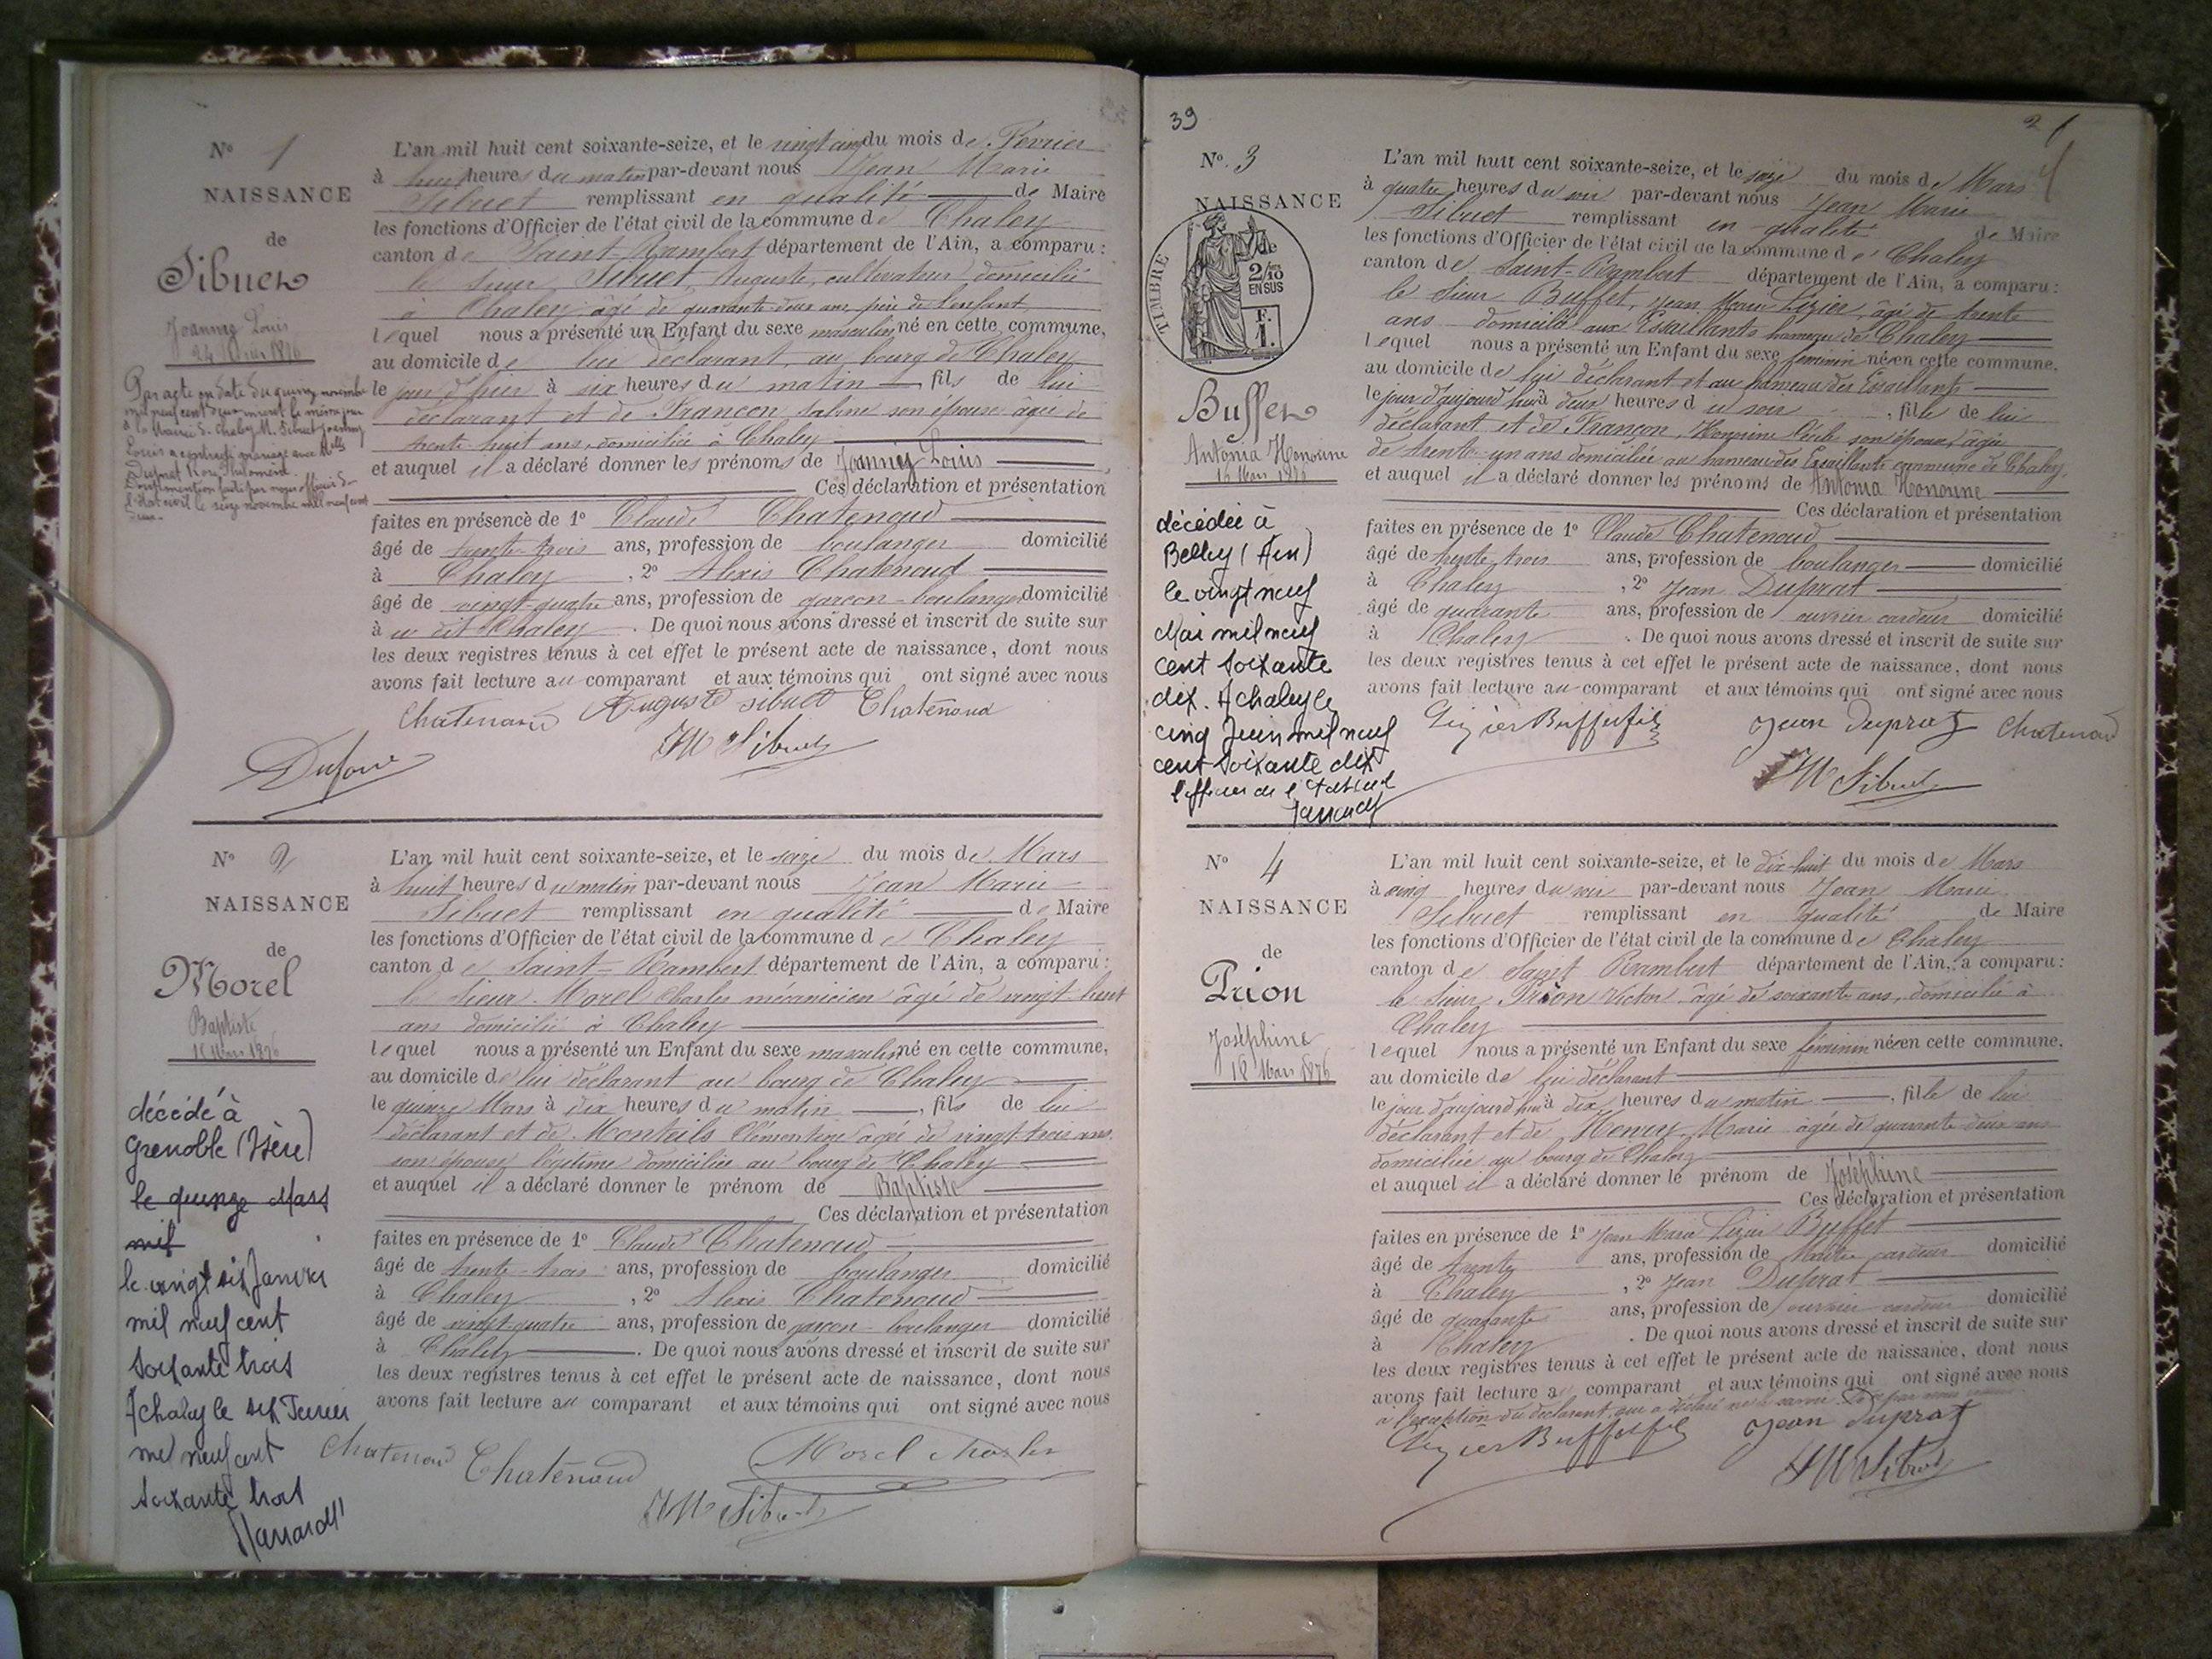 N° 1
NAISSANCE
de
Sibuet
Joanny Louis
24 février 1876
Par acte en date du quinze novembre
mil neuf cent deux
à la Mairie de Chaley M. Sibuet Joanny
Louis a contracté mariage avec Mlle
Duprat Rose Philomène.
l'état civil le seize novembre mil neuf cent
deux.
L'an mil huit cent soixante-seize, et le vingt cinq du mois de Février
à huit heures du matin par-devant nous Jean Marie
Sibuet remplissant en qualité de Maire
les fonctions d'Officier de l'état civil de la commune de Chaley
canton de Saint-Rambert département de l'Ain, a comparu :
le sieur Sibuet, Auguste, cultivateur domicilié
à Chaley âgé de quarante deux ans, père de l'enfant
lequel nous a présenté un Enfant du sexe masculin né en cette commune,
au domicile de lui déclarant, au bourg de Chaley
le jour d'hier à six heures du matin, fils de lui
déclarant et de Françon, Sabine son épouse âgée de
trente huit ans, domiciliée à Chaley
et auquel il a déclaré donner les prénoms de Joanny Louis
Ces déclaration et présentation
faites en présence de 1° Claude Chatenoud
âgé de trente-trois ans, profession de boulanger domicilié
à Chaley, 2° Alexis Chatenoud
âgé de vingt-quatre ans, profession de garçon-boulanger domicilié
à u dit Chaley. De quoi nous avons dressé et inscrit de suite sur
les deux registres tenus à cet effet le présent acte de naissance, dont nous
avons fait lecture au comparant et aux témoins qui ont signé avec nous
Chatenoud Auguste Sibuet Chatenoud
JM Sibuet
Dufour
N° 2
NAISSANCE
de
Morel
Baptiste
15 Mars 1876
décédé à
Grenoble (Isère)
le quinze Mars
mil
le vingt six Janvier
mil neuf cent
soixante trois
A chaley le six Février
mil neuf cent
soixante trois
L'an mil huit cent soixante-seize, et le seize du mois de Mars
à huit heures du matin par-devant nous Jean Marie
Sibuet remplissant en qualité de Maire
les fonctions d'Officier de l'état civil de la commune de Chaley
canton de Saint-Rambert département de l'Ain, a comparu :
le sieur Morel Charles mécanicien âgé de vingt-huit
ans domicilié à Chaley
lequel nous a présenté un Enfant du sexe masculin né en cette commune,
au domicile de lui déclarant au bourg de Chaley
le quinze Mars à dix heures du matin, fils de lui
déclarant et de Monteils Clémentine âgée de vingt-trois ans
son épouse légitime domiciliée au bourg de Chaley
et auquel il a déclaré donner le prénom de Baptiste
Ces déclaration et présentation
faites en présence de 1° Claude Chatenoud
âgé de trente-trois ans, profession de boulanger domicilié
à Chaley, 2° Alexis Chatenoud
âgé de vingt-quatre ans, profession de garçon-boulanger domicilié
à Chaley. De quoi nous avons dressé et inscrit de suite sur
les deux registres tenus à cet effet le présent acte de naissance, dont nous
avons fait lecture au comparant et aux témoins qui ont signé avec nous
Chatenoud Chatenoud Morel Charles
JM Sibuet
39
2
N° 3
NAISSANCE
de
TIMBRE
2/10
EN SUS
F.
1.
Buffet
Antonia Honorine
16 Mars 1876
décédée à
Belley (Ain)
le vingt neuf
Mai mil neuf
cent soixante
dix. A chaley le
cinq Juin mil neuf
cent soixante dix
l'officier de l'état civil
L'an mil huit cent soixante-seize, et le seize du mois de Mars
à quatre heures du soir par-devant nous Jean Marie
Sibuet remplissant en qualité de Maire
les fonctions d'Officier de l'état civil de la commune de Chaley
canton de Saint-Rambert département de l'Ain, a comparu :
le sieur Buffet, Jean Marie Lizier, âgé de trente
ans domicilié aux Essaillants hameau de Chaley
lequel nous a présenté un Enfant du sexe féminin née en cette commune,
au domicile de lui déclarant et au hameau des Essaillants
le jour d'aujourd'hui à deux heures du soir, fille de lui
déclarant et de Françon, Honorine Cécile son épouse, âgée
de trente-un ans domiciliée au hameau des Essaillants commune de Chaley,
et auquel il a déclaré donner les prénoms de Antonia Honorine
Ces déclaration et présentation
faites en présence de 1° Claude Chatenoud
âgé de trente trois ans, profession de boulanger domicilié
à Chaley, 2° Jean Duprat
âgé de quarante ans, profession de ouvrier cardeur domicilié
à Chaley. De quoi nous avons dressé et inscrit de suite sur
les deux registres tenus à cet effet le présent acte de naissance, dont nous
avons fait lecture au comparant et aux témoins qui ont signé avec nous
Lizier Buffet fils Jean Duprat Chatenoud
JM Sibuet
N° 4
NAISSANCE
de
Prion
Joséphine
18 Mars 1876
L'an mil huit cent soixante-seize, et le dix-huit du mois de Mars
à cinq heures du soir par-devant nous Jean Marie
Sibuet remplissant en qualité de Maire
les fonctions d'Officier de l'état civil de la commune de Chaley
canton de Saint Rambert département de l'Ain, a comparu :
le sieur Prion Victor, âgé de soixante ans, domicilié à
Chaley
lequel nous a présenté un Enfant du sexe féminin née en cette commune,
au domicile de lui déclarant
le jour d'aujourd'hui à dix heures du matin, fille de lui
déclarant et de Henry, Marie âgée de quarante deux ans
domiciliée au bourg de Chaley
et auquel il a déclaré donner le prénom de Joséphine
Ces déclaration et présentation
faites en présence de 1° Jean Marie Lizier Buffet
âgé de trente ans, profession de Maître cardeur domicilié
à Chaley, 2° Jean Duprat
âgé de quarante ans, profession de ouvrier cardeur domicilié
à Chaley. De quoi nous avons dressé et inscrit de suite sur
les deux registres tenus à cet effet le présent acte de naissance, dont nous
avons fait lecture au comparant et aux témoins qui ont signé avec nous
à l'exception du déclarant, qui a déclaré ne le savoir
Lizier Buffet fils Jean Duprat
JM Sibuet